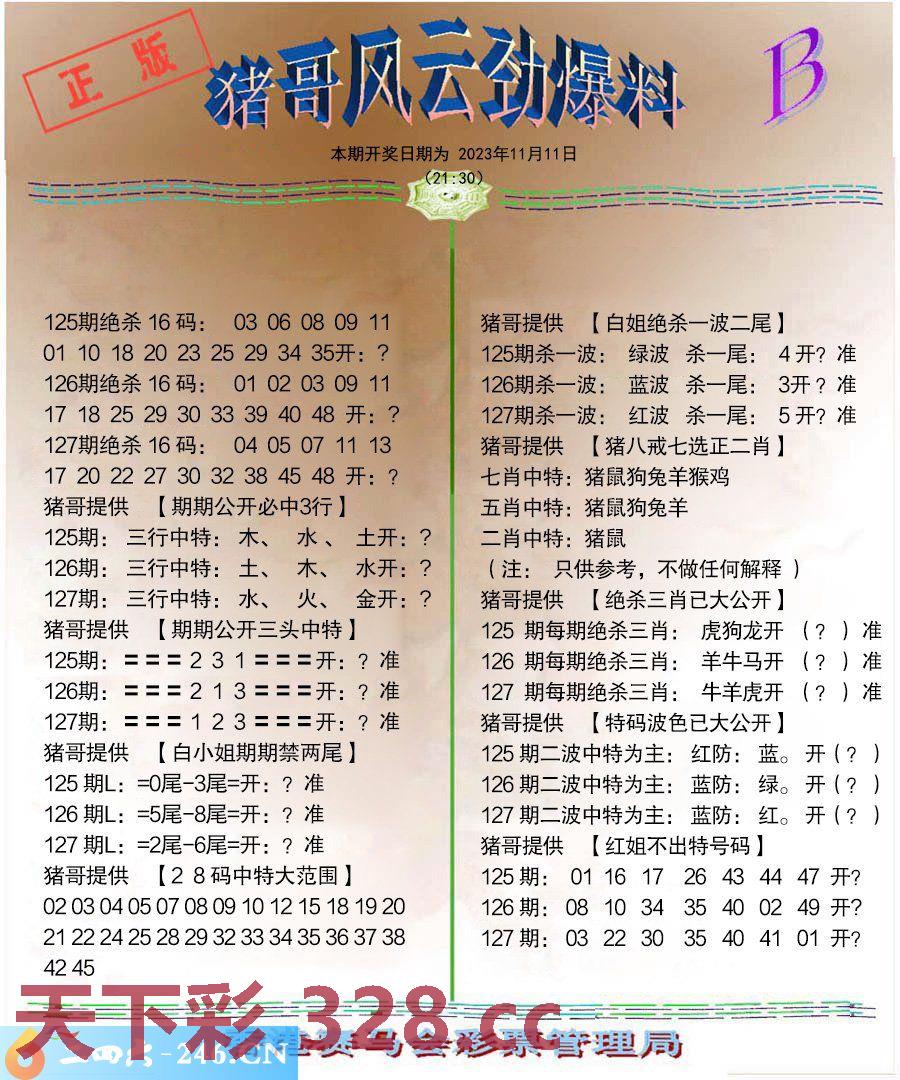 正版
猪哥风云劲爆料
B
本期开奖日期为 2023年11月11日
(21:30)
125期绝杀 16 码： 03 06 08 09 11
01 10 18 20 23 25 29 34 35开：?
126期绝杀 16 码： 01 02 03 09 11
17 18 25 29 30 33 39 40 48 开：?
127期绝杀 16 码： 04 05 07 11 13
17 20 22 27 30 32 38 45 48 开：?
猪哥提供 【期期公开必中3行】
125期： 三行中特： 木、 水 、 土开：?
126期： 三行中特： 土、 木、 水开：?
127期： 三行中特： 水、 火、 金开：?
猪哥提供 【期期公开三头中特】
125期：＝＝＝２３１＝＝＝开：? 准
126期：＝＝＝２１３＝＝＝开：? 准
127期：＝＝＝１２３＝＝＝开：? 准
猪哥提供 【白小姐期期禁两尾】
125 期L：=0尾-3尾=开：? 准
126 期L：=5尾-8尾=开：? 准
127 期L：=2尾-6尾=开：? 准
猪哥提供 【２８码中特大范围】
02 03 04 05 07 08 09 10 12 15 18 19 20
21 22 24 25 28 29 32 33 34 35 36 37 38
42 45
猪哥提供 【白姐绝杀一波二尾】
125期杀一波： 绿波 杀一尾： 4 开? 准
126期杀一波： 蓝波 杀一尾： 3开 ? 准
127期杀一波： 红波 杀一尾： 5 开? 准
猪哥提供 【猪八戒七选正二肖】
七肖中特：猪鼠狗兔羊猴鸡
五肖中特：猪鼠狗兔羊
二肖中特：猪鼠
（注： 只供参考，不做任何解释 ）
猪哥提供 【绝杀三肖已大公开】
125 期每期绝杀三肖： 虎狗龙开 （? ）准
126 期每期绝杀三肖： 羊牛马开 （? ）准
127 期每期绝杀三肖： 牛羊虎开 （? ）准
猪哥提供 【特码波色已大公开】
125 期二波中特为主： 红防： 蓝。 开（? ）
126 期二波中特为主： 蓝防： 绿。 开（? ）
127 期二波中特为主： 蓝防： 红。 开（? ）
猪哥提供 【红姐不出特号码】
125 期： 01 16 17 26 43 44 47 开?
126 期： 08 10 34 35 40 02 49 开?
127 期： 03 22 30 35 40 41 01 开?
天下彩 328.cc
-246.CN
赛马会彩票管理局